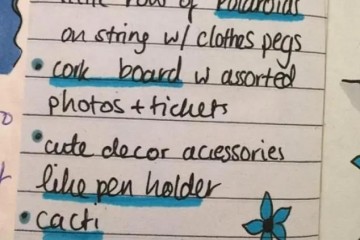 row of Polaroids
on string w/ clothes pegs
• cork board w assorted
photos + tickets
• cute decor accessories
like pen holder
• cacti